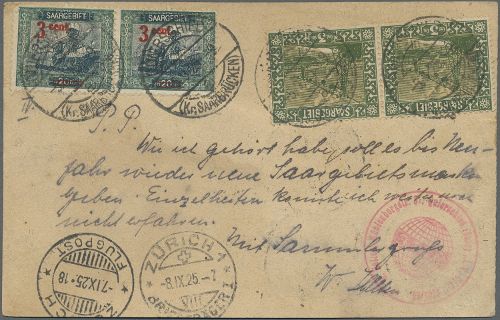 SAARGEBIET SAARGEBIET
3 cent. 3 cent.
20 20
SAARGEBIET SAARGEBIET
(Kr. SAARBRÜCKEN) (Kr. SAARBRÜCKEN)
P. P.
Wie ich gehört habe, soll es bis Neu-
jahr wieder neue Saargebietsmarken
geben. Einzelheiten konnte ich
nicht erfahren.
Mit Sammlergruß
W.
ZÜRICH 1
-8.IX.25.-7
VIII
BRIEFTRÄGER 1
-7.IX.25-18
FLUGPOST